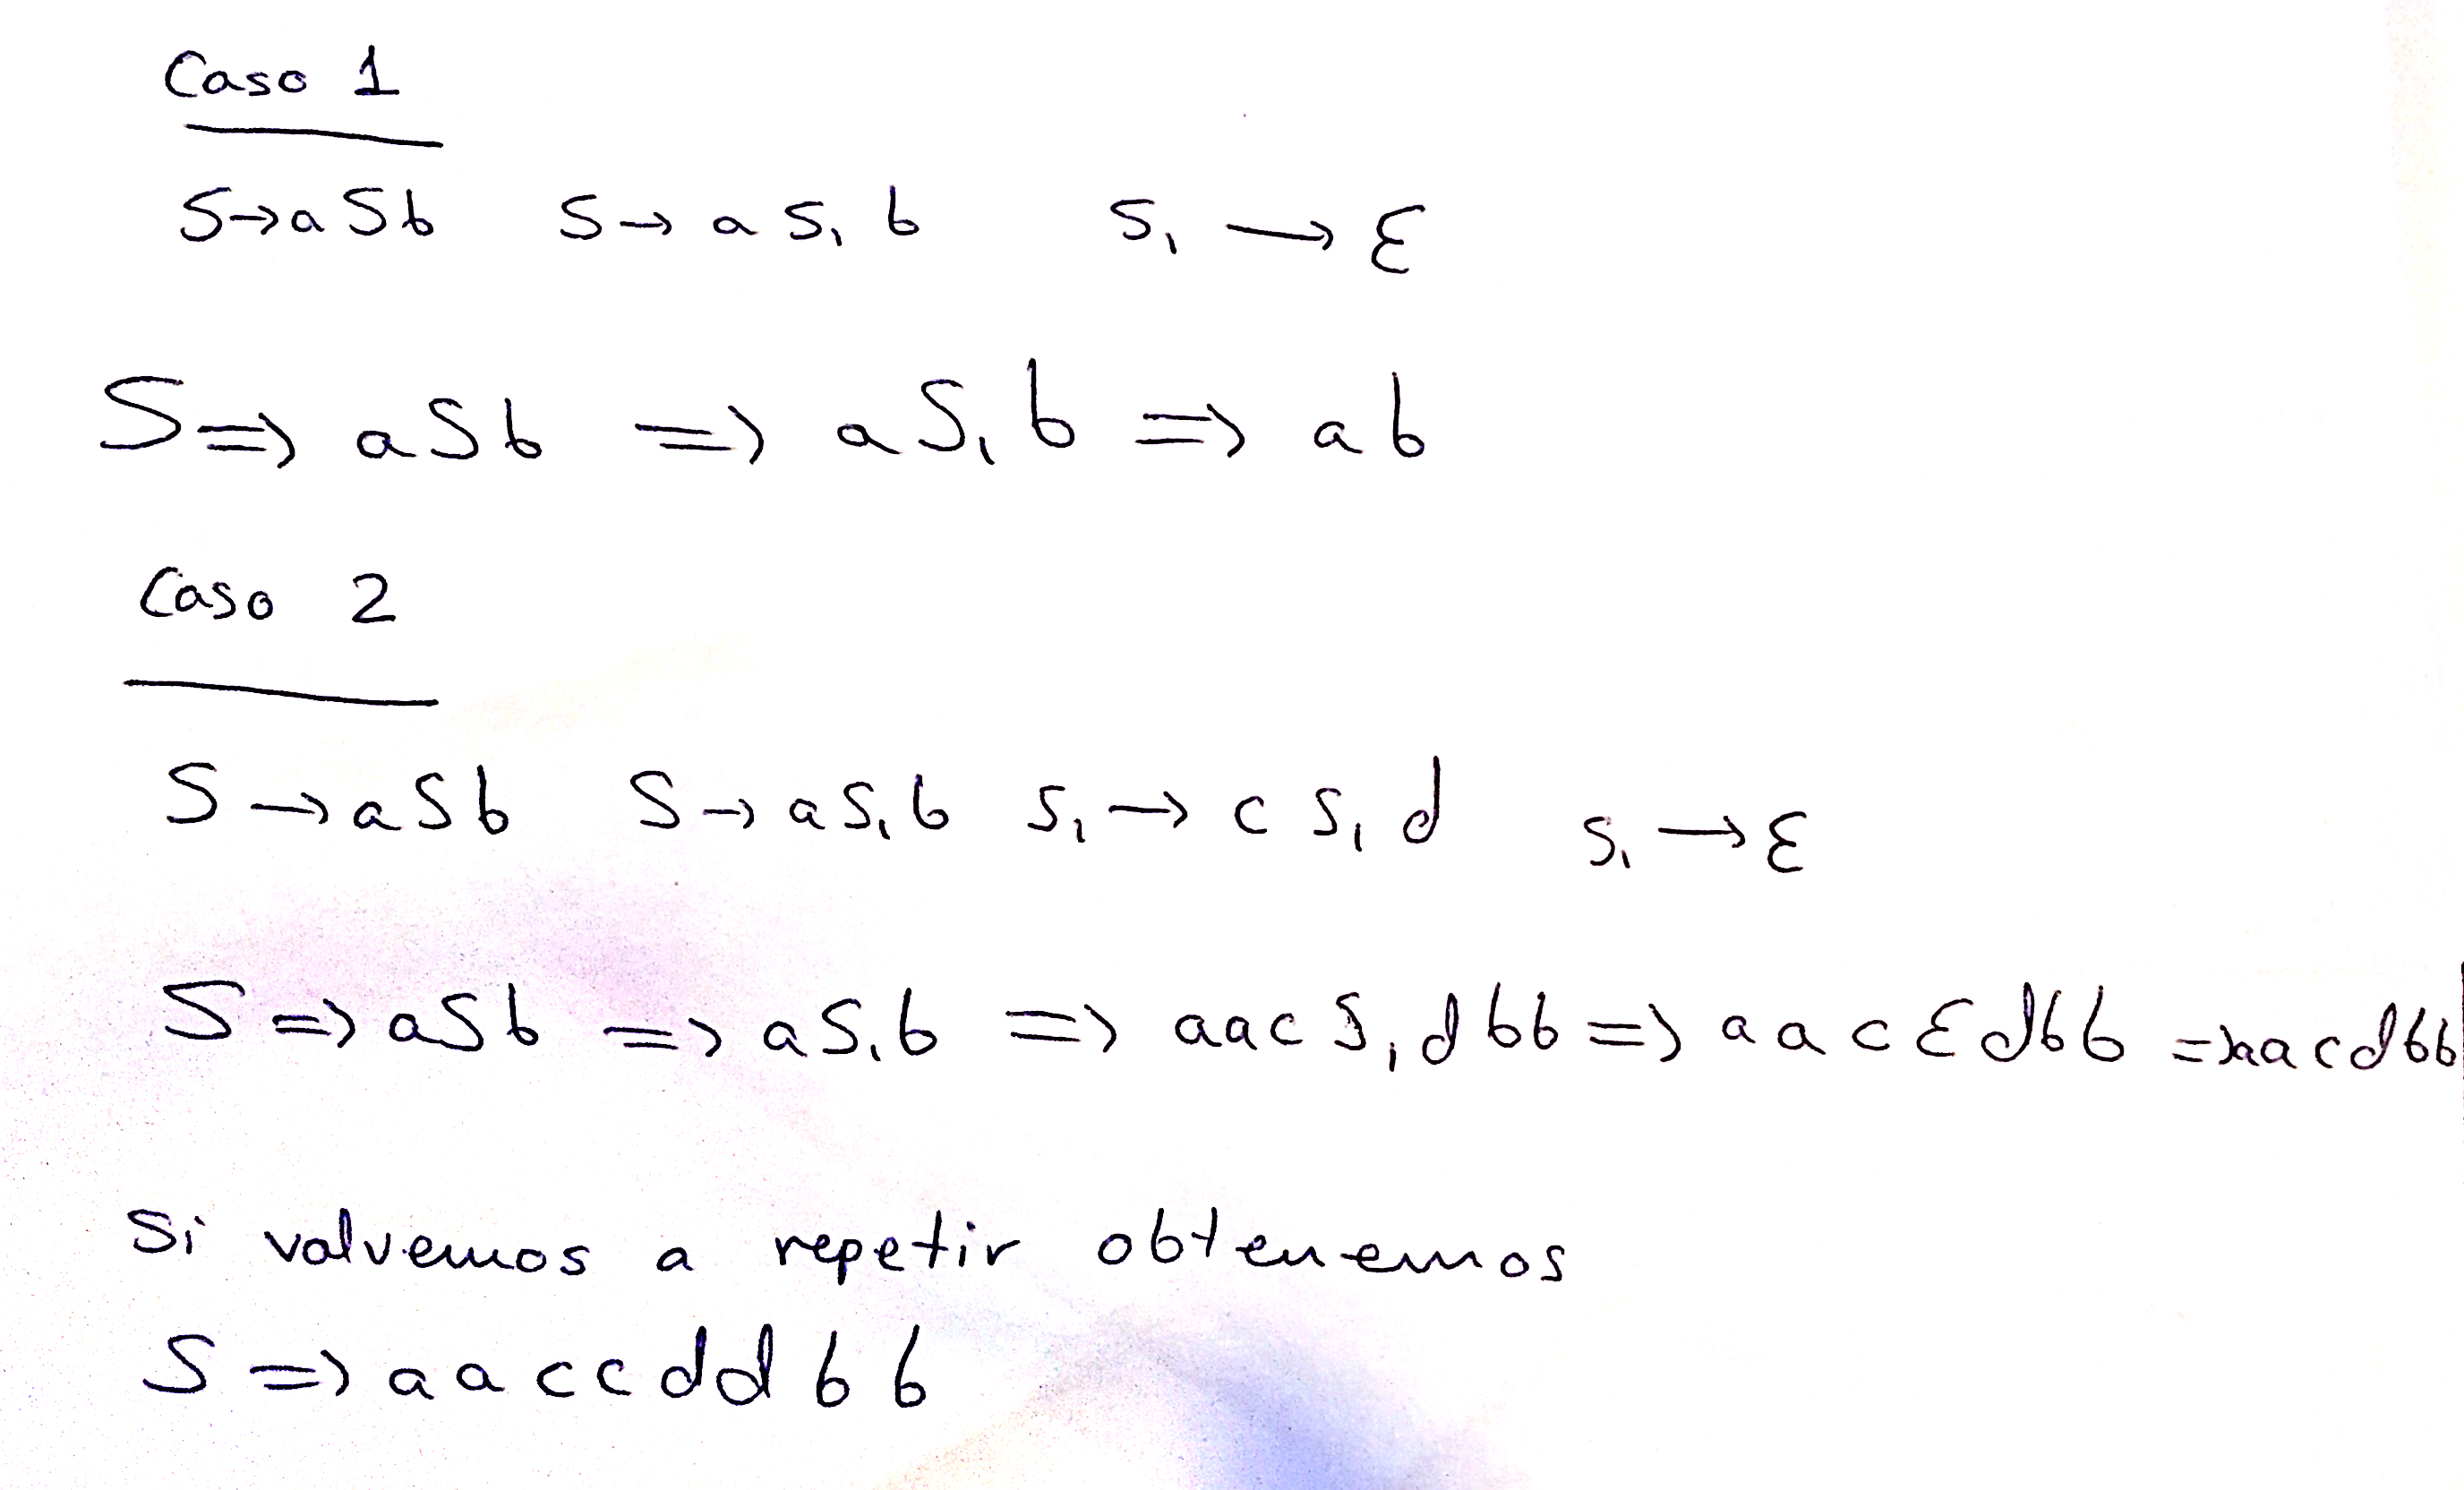 Caso 1
S→aSb S→ aS₁b S₁ → ε
S⇒ aSb ⇒ aS₁b ⇒ ab
Caso 2
S→aSb S→aS₁b S₁→ cS₁d S₁→ε
S⇒aSb ⇒aS₁b ⇒ aacS₁dbb⇒ aacεdbb ⇒aacdbb
Si volvemos a repetir obtenemos
S⇒aaccddbb